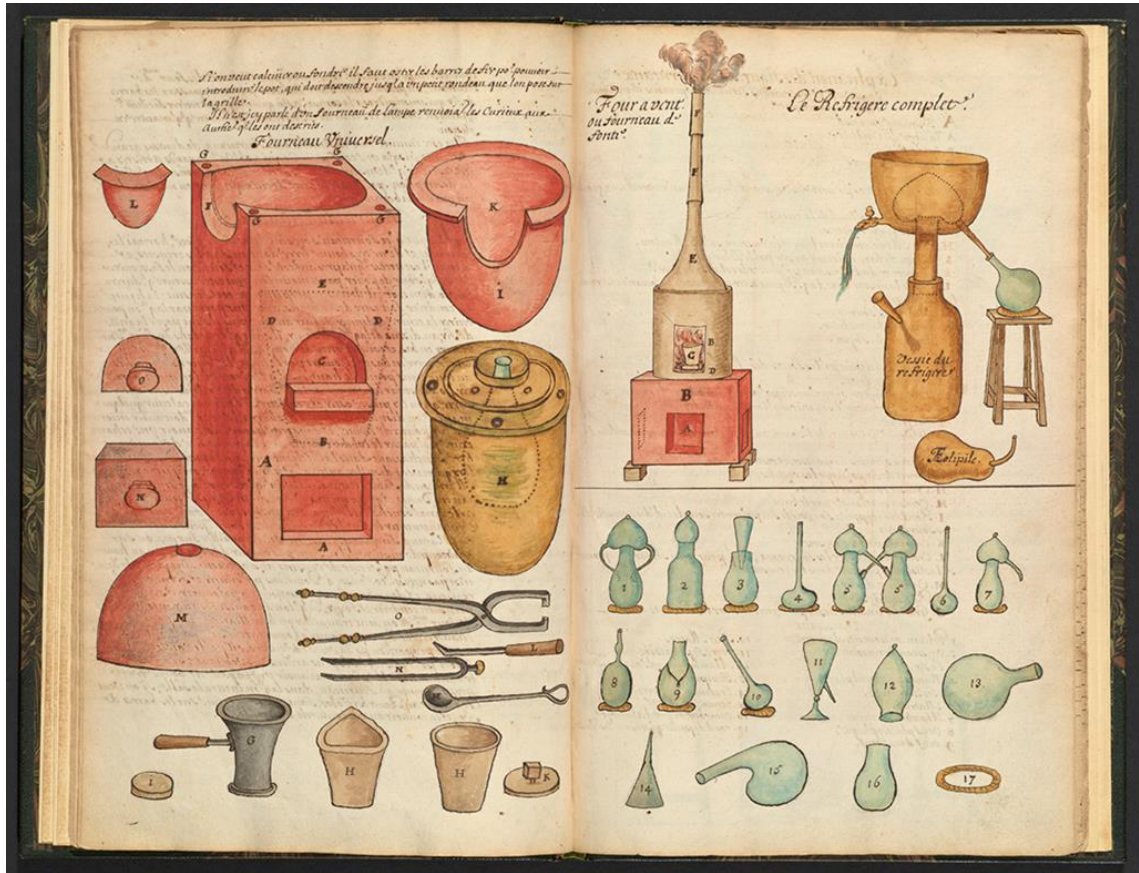 Si on veut calciner ou fondre il faut oster les barres de fer po.r pouvoir
introduire le pot, qui doit descendre jusq'a un petit rondeau que l'on pose sur
la grille.
parlé d'un fourneau de Lampe les Curieux aux
Auth.rs q.i les ons descris.
Fourneau Universel.
G
G
L
F
G
G
K
E
I
D
D
C
O
B
N
A
H
A
M
O
L
N
M
G
H
H
I
K
Four a vent
ou fourneau de
fonte
Le Refrigere complet.
F
F
E
B
G
D
B
A
Vessie du
refrigere
Æolipile.
1
2
3
4
5
5
6
7
8
9
10
11
12
13
14
15
16
17